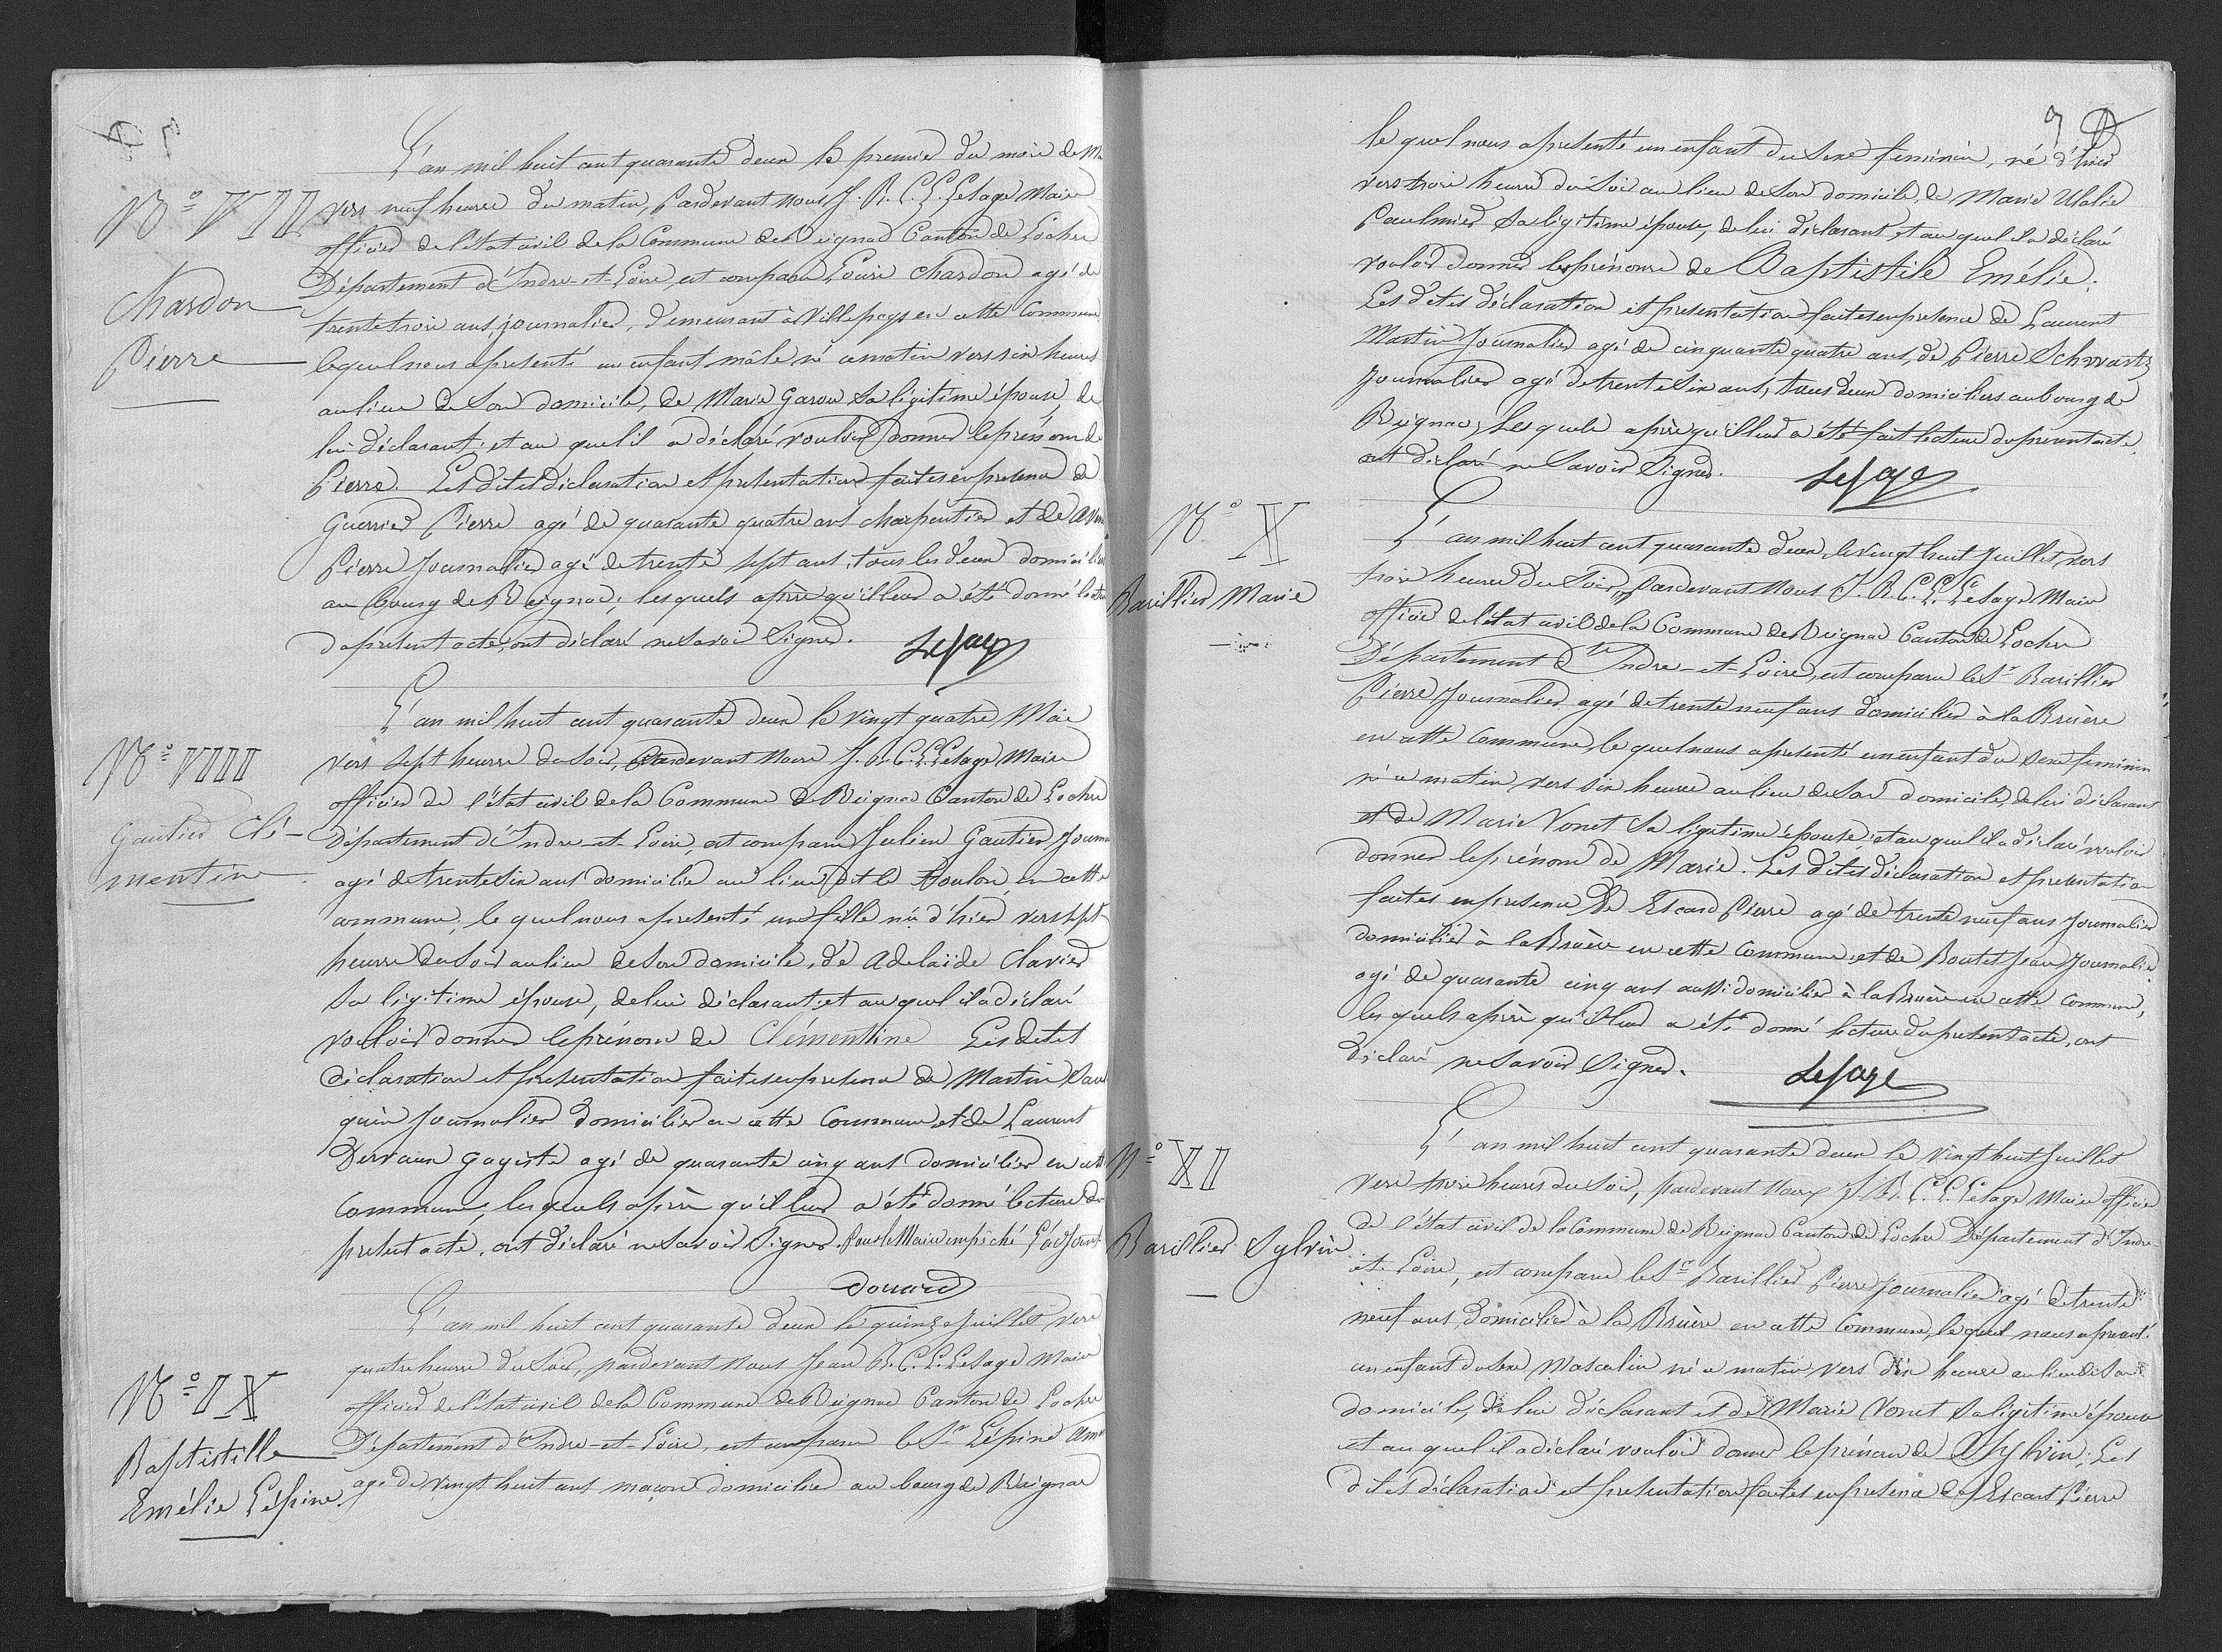 L'an mil huit cent quarante deux le premier du mois de
N° VII
vers neuf heures du matin, Pardevant nous J. R. C. L. Lesage Maire
officier de l'état civil de la Commune de Reignac Canton de Loches
Département d'Indre-et-Loire, est comparu Louis Chardon agé de
Chardon
trente trois ans, journalier, demeurant à Villepays en cette Commune,
Pierre
lequel nous a présenté un enfant mâle né ce matin vers six heures
au lieu de son domicile, de Marie Garou sa légitime épouse, de
lui déclarant; et au quel il a déclaré vouloir donner le prénom de
Pierre. Les dites déclaration et présentation faites en présence de
Guerrier Pierre agé de quarante quatre ans charpentier et de
Pierre Journalier agé de trente sept ans, tous les deux
au bourg de Reignac; lesquels après qu'il leur a été donné
du présent acte, ont déclaré ne savoir signer. Lesage
L'an mil huit cent quarante deux le vingt quatre Mai
N° VIII
vers sept heures du soir, Pardevant nous J. R. C. L. Lesage Maire
officier de l'état civil de la Commune de Reignac Canton de Loches
Gautier Clé-
Département d'Indre-et-Loire, est comparu Julien Gautier
mentine
agé de trente six ans domicilié au lieu dit le Toulon en cette
commune, le quel nous a présenté une fille née d'hier vers sept
heures du soir au lieu de son domicile, de Adelaïde Clavier
sa légitime épouse, de lui déclarant; et au quel il a déclaré
vouloir donner le prénom de Clémentine Les dites
déclaration et présentation faites en présence de Martin
quin Journalier domicilier en cette Commune et de Laurent
Dervaux gagiste agé de quarante cinq ans domicilier en cette
Commune; les quels après qu'il leur a été donné lecture du
présent acte, ont déclaré ne savoir signer. Pour le Maire empêché L'adjoint
Douard
L'an mil huit cent quarante deux le quinze Juillet vers
quatre heures du soir, pardevant nous Jean R. C. L. Lesage Maire
N° IX
officier de l'état civil de la Commune de Reignac Canton de Loches
Baptistille
Département d'Indre-et-Loire, est comparu le Sr Lépine
Emélie Lépine.
agé de vingt huit ans maçon domicilier au bourg de Reignac
9
le quel nous a présenté un enfant du sexe feminin, né d'hier
vers trois heures du soir au lieu de son domicile, de Marie Ulalie
Paulmier sa légitime épouse, de lui déclarant, et au quel il a déclaré
vouloir donner les prénoms de Baptistile Emélie;
Les dites déclaration et présentation faites en présence de Laurent
Martin Journalier agé de cinquante quatre ans, de Pierre Schwartz
Journalier agé de trente six ans, tous deux domiciliers au bourg de
Reignac, Les quels après qu'il leur a été fait lecture du présent acte,
ont déclaré ne savoir signer. Lesage
N° X
L'an mil huit cent quarante deux, le vingt huit Juillet, vers
Barillier Marie
trois heures du soir, Pardevant nous J. R. C. L. Lesage Maire
officier de l'état civil de la Commune de Reignac Canton de Loches
Département d'Indre-et-Loire, est comparu le Sr Barillier
Pierre Journalier agé de trente neuf ans domicilier à la Bruère
en cette Commune, le quel nous a présenté un enfant du sexe feminin
né ce matin vers six heures au lieu de son domicile, de lui déclarant
et de Marie Vonet sa légitime épouse; et au quel il a déclaré vouloir
donner le prénom de Marie. Les dites déclaration et présentation
faites en présence de Escard Pierre agé de trente neuf ans Journalier
domicilier à la Bruère en cette Commune et de Boutet Jean Journalier
agé de quarante cinq ans aussi domicilier à la Bruère en cette Commune,
les quels après qu'il leur a été donné lecture du présent acte, ont
déclaré ne savoir signer. Lesage
N° XI
L'an mil huit cent quarante deux le vingt huit Juillet
vers trois heures du soir, pardevant nous J. R. C. L. Lesage Maire officier
de l'état civil de la Commune de Reignac Canton de Loches Département d'Indre-
Barillier Sylvin
et-Loire, est comparu le Sr Barillier Pierre Journalier agé de trente
neuf ans, domicilier à la Bruère en cette Commune, le quel nous a présenté
un enfant du sexe Masculin né ce matin vers dix heures au lieu de son
domicile, de lui déclarant et de Marie Vonet sa légitime épouse
et au quel il a déclaré vouloir donner le prénom de Sylvin; Les
dites déclaration et présentation faites en présence de Escart Pierre